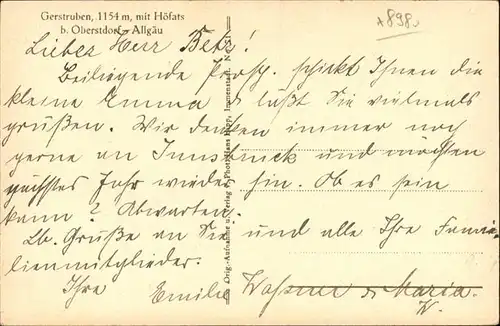 Gerstruben, 1154 m, mit Höfats
b. Oberstdorf - Allgäu
+898.
Lieber Herr Betz!
Beiliegende Prosp. schickt Ihnen die
kleine Emma & läßt Sie vielmals
grüßen. Wir denken immer noch
gerne an Innsbruck und möchten
nächstes Jahr wieder hin. Ob es sein
kann? Abwarten.
Lb. Grüße an Sie und alle Ihre Fami-
lienmitglieder.
Ihre
Emilie & Maria.
W.
Orig.-Aufnahme u. Verlag Photo-Hans Hipp, Immenstadt.